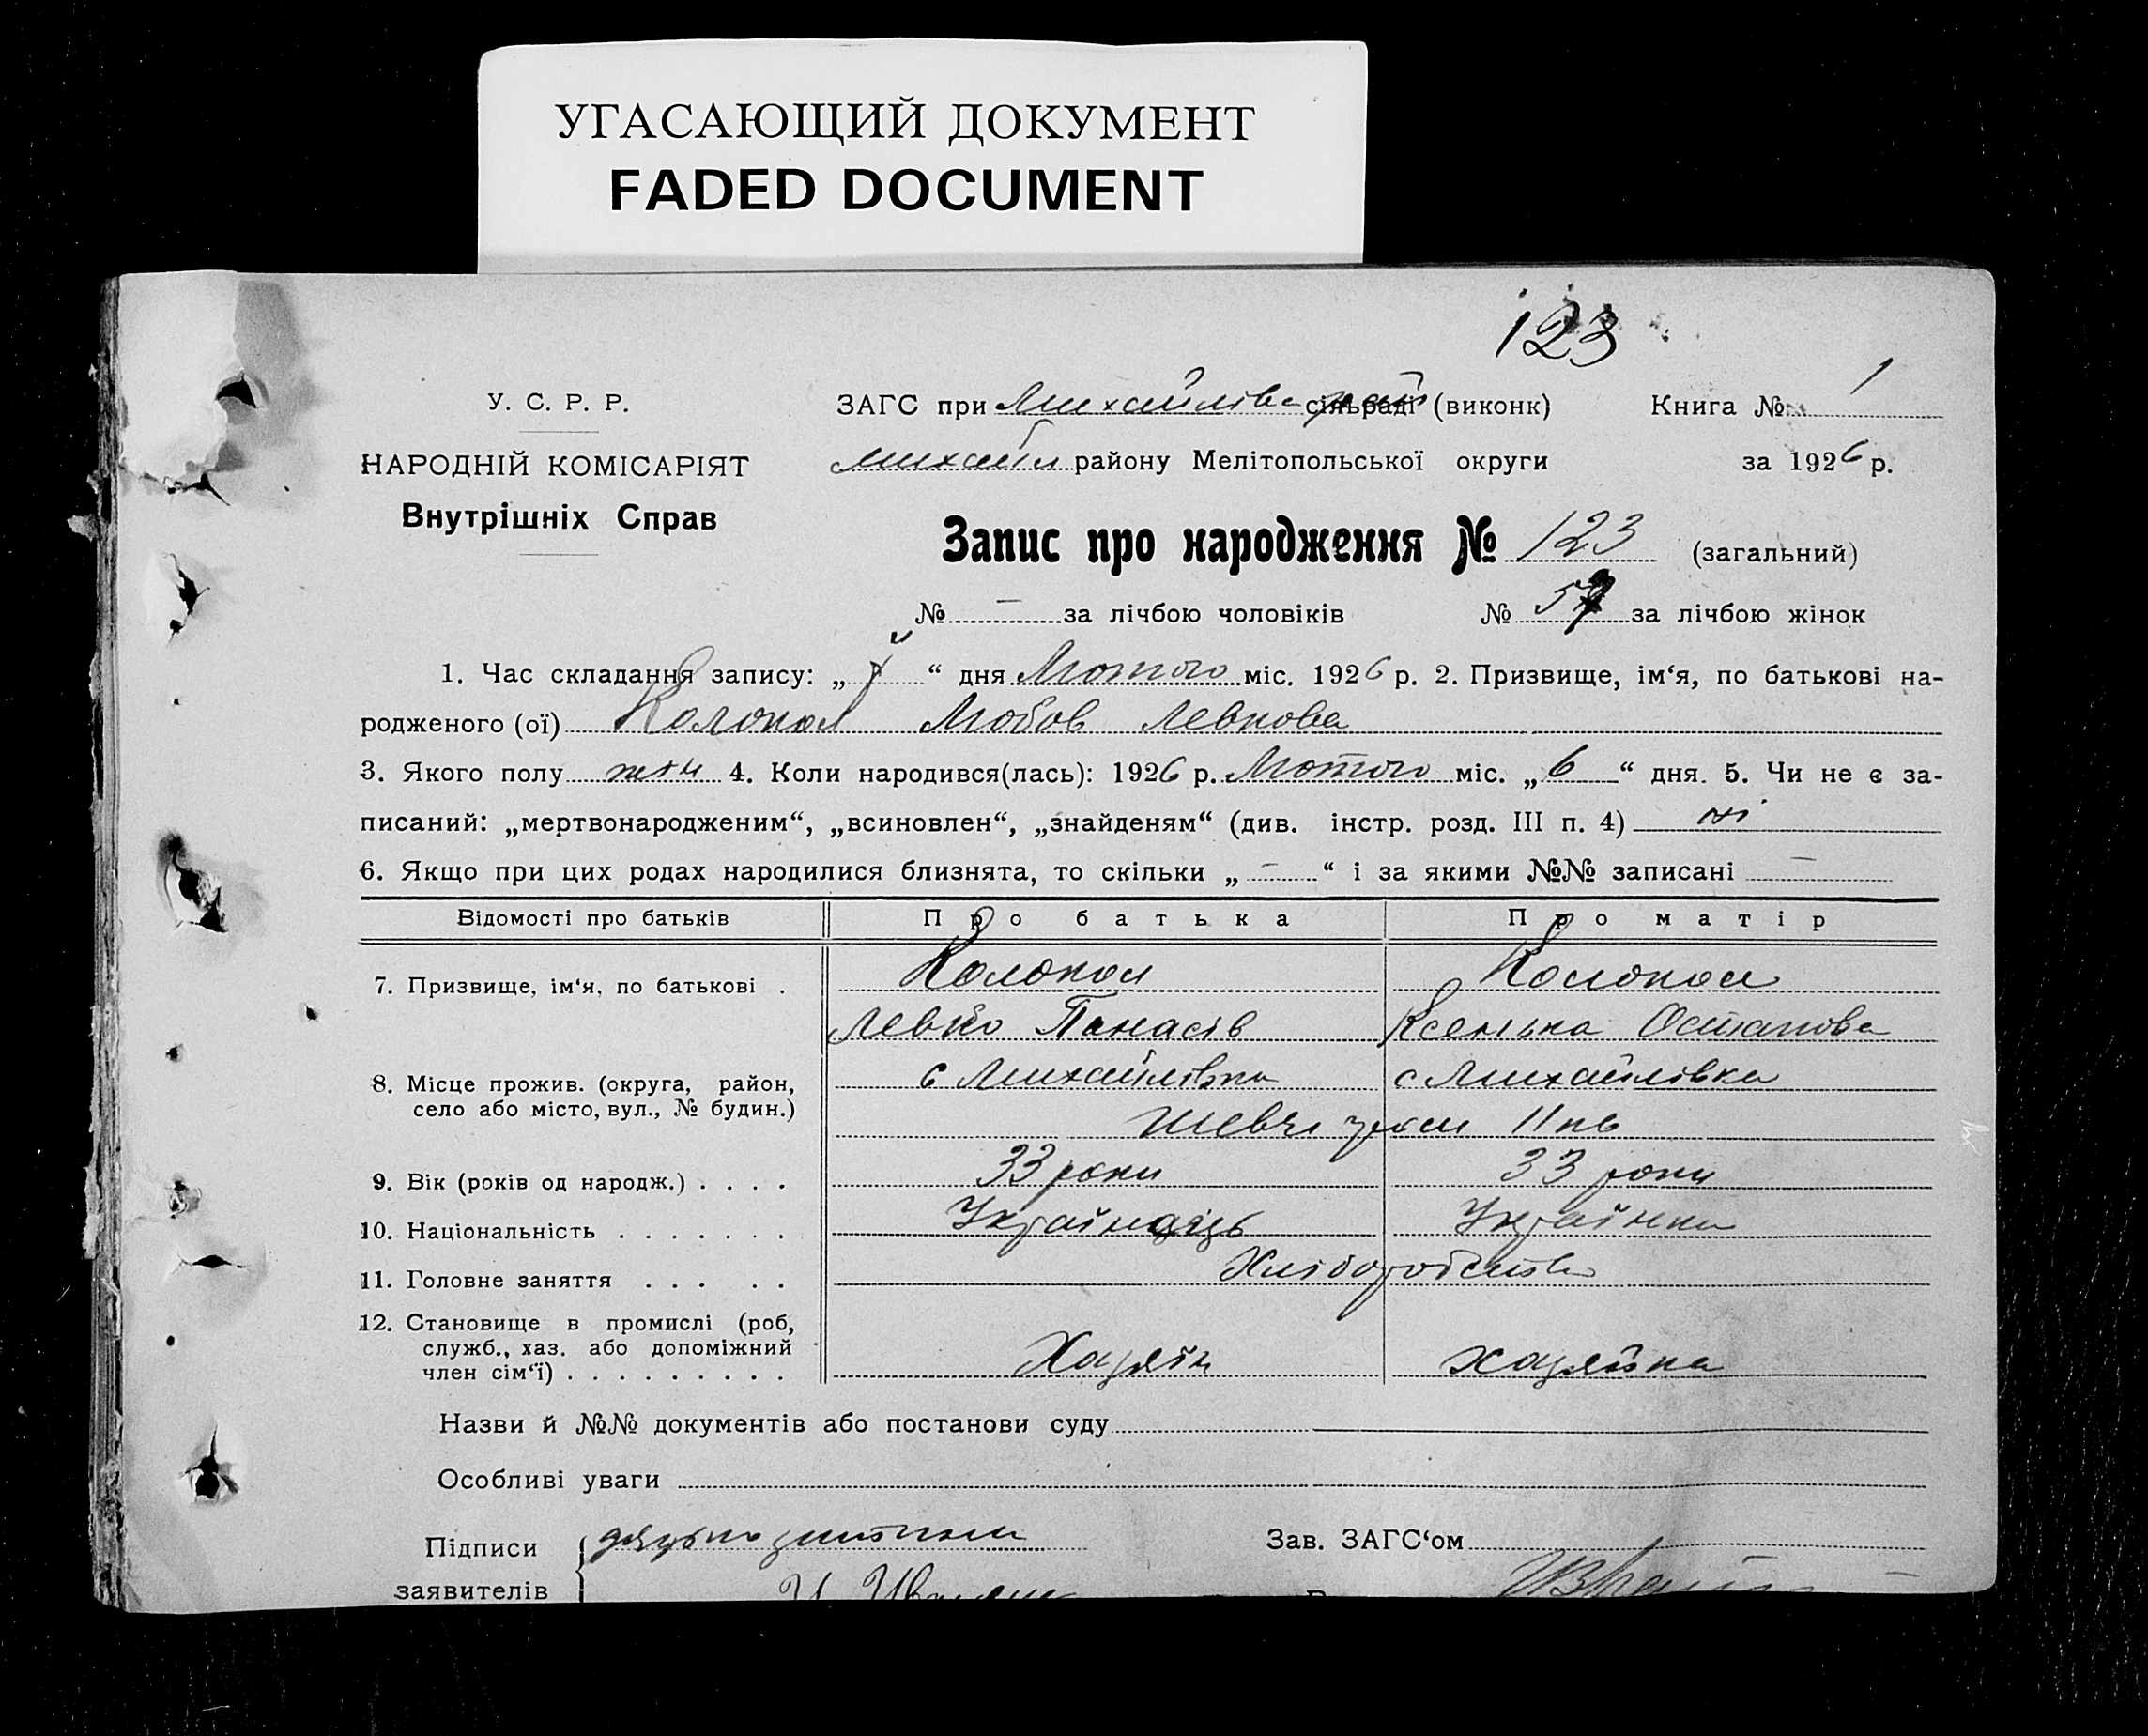 УГАСАЮЩИЙ ДОКУМЕНТ
FADED DOCUMENT
123
У. С. Р. Р.
НАРОДНІЙ КОМІСАРІЯТ
Внутрішніх Справ
ЗАГС при Михайлівс сільраді (виконк) Книга № 1
михайл району Мелітопольської округи за 1926 р.
Запис про народження № 123 (загальний)
№ — за лічбою чоловіків № за лічбою жінок
1. Час складання запису: „ “ дня Лютого міс. 1926 р. 2. Призвище, ім‘я, по батькові на-
родженого (ої) Колокол Любов Левкова
3. Якого полу жін 4. Коли народився(лась): 1926 р. Лютого міс. „ 6 “ дня. 5. Чи не є за-
писаний: „мертвонародженим“, „всиновлен“, „знайденям“ (див. інстр. розд. III п. 4) ні
6. Якщо при цих родах народилися близнята, то скільки „ — “ і за якими №№ записані —
Відомості про батьків Про батька Про матір
7. Призвище, ім‘я, по батькові . Колокол Колокол
Левко Панасів Ксенька Остапова
8. Місце прожив. (округа, район, с Михайлівка с Михайлівка
село або місто, вул., № будин.) 11 кв
9. Вік (років од народж.) . . . . 33 роки 33 роки
10. Національність . . . . . . . Українець Українка
11. Головне заняття . . . . . Хліборобство
12. Становище в промислі (роб,
служб., хаз. або допоміжний
член сім‘ї) . . . . . . . . . Хазяїн хазяйка
Назви й №№ документів або постанови суду
Особливі уваги
Підписи Зав. ЗАГС‘ом
заявителів